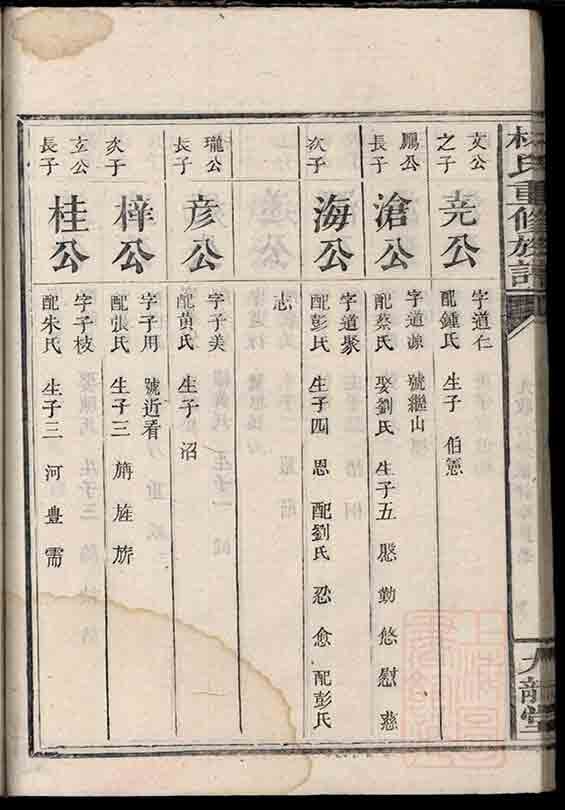 林氏重修族譜
九龍堂
文公
之子
尭公
字道仁
配鍾氏 生子 伯憲
鳳公
長子
滄公
字道源 號繼山
配蔡氏 娶劉氏 生子五 愍 勤 悠 慰 慈
次子
海公
字道聚
配彭氏 生子四 恩 配劉氏 忍 愈 配彭氏
志
瓏公
長子
彦公
字子美
配黃氏 生子 沼
次子
梓公
字子用 號近看
配張氏 生子三 旂 旌 旂
玄公
長子
桂公
字子枝
配朱氏 生子三 河 豊 需